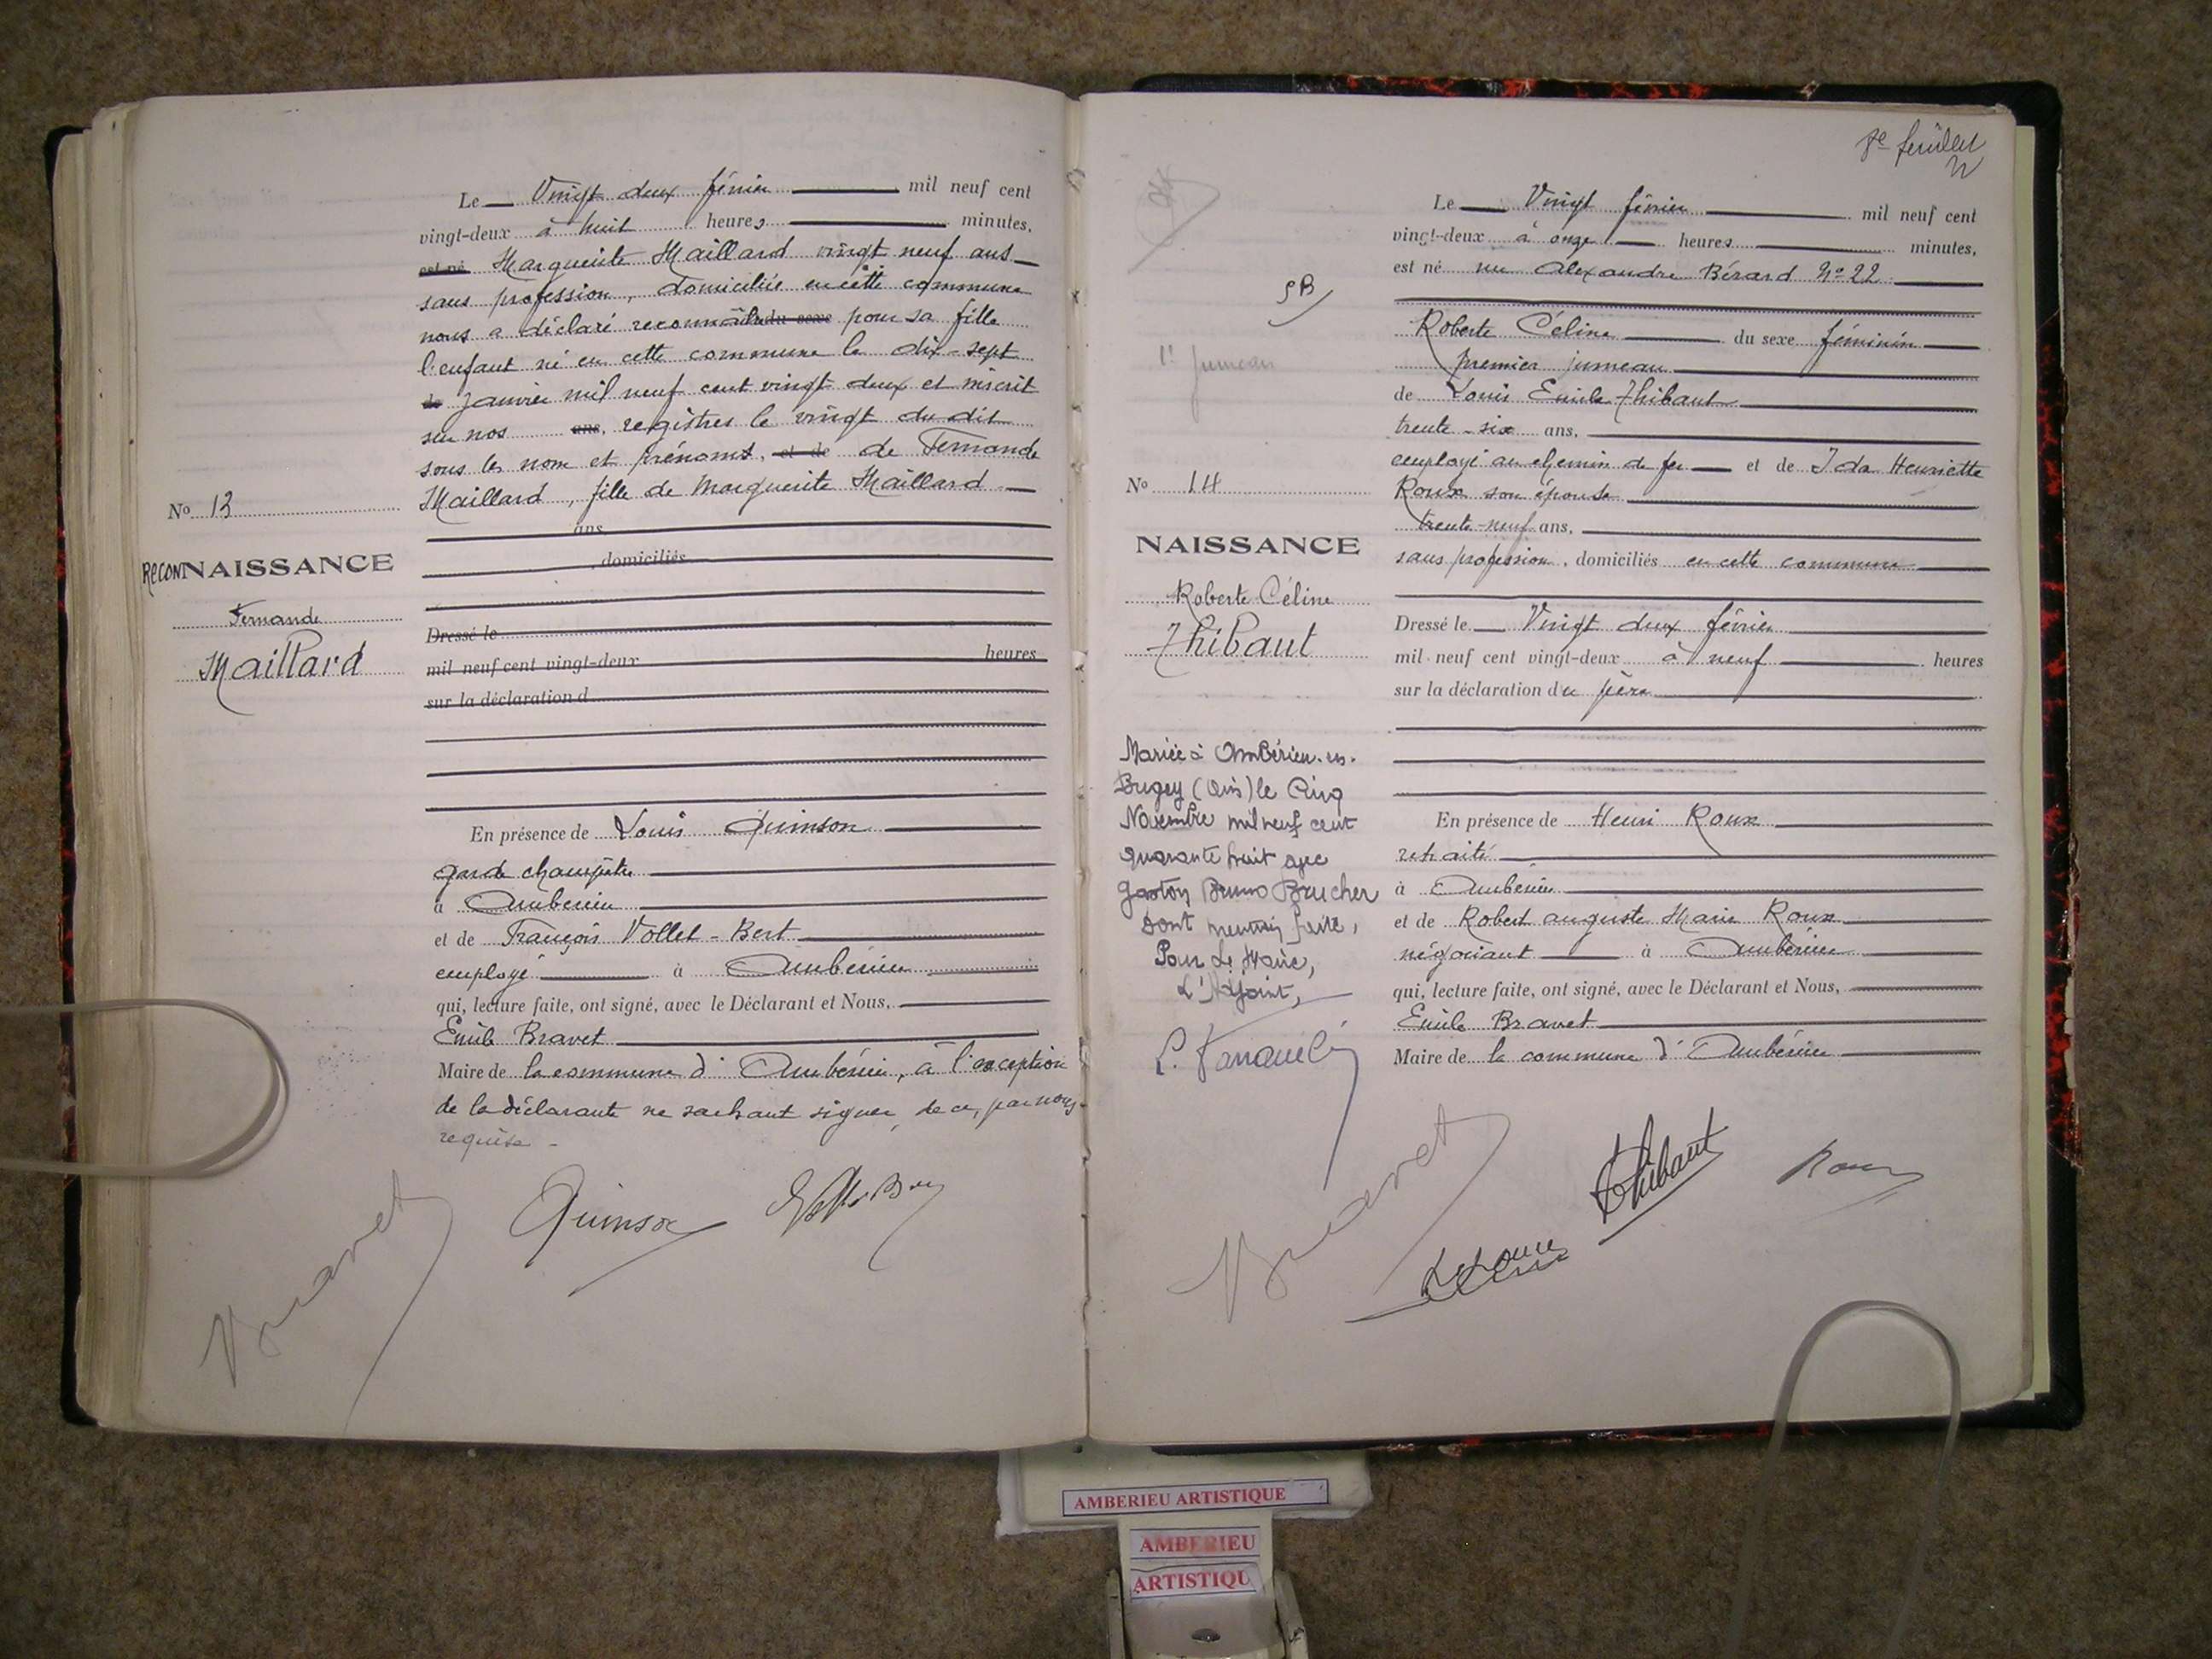 Le Vingt deux février mil neuf cent
vingt-deux à huit heures minutes,
est né Marguerite Maillard vingt neuf ans
sans profession, domiciliée en cette commune
nous a déclaré reconnaître du sexe pour sa fille
l'enfant né en cette commune le dix-sept
de janvier mil neuf cent vingt deux et inscrit
sur nos ans, registres le vingt du dit
sous les nom et prénoms, et de de Fernande
Maillard, fille de Marguerite Maillard
ans
, domiciliés
Dressé le
mil neuf cent vingt-deux heures
sur la déclaration d
No 13
RECONNAISSANCE
Fernande
Maillard
En présence de Louis Quinson
garde champêtre
à Ambérieu
et de François Vollet-Bert
employé à Ambérieu
qui, lecture faite, ont signé, avec le Déclarant et Nous,
Emile Bravet
Maire de la commune d'Ambérieu, à l'exception
de la déclarante ne sachant signer, de ce, par nous
requise -
Bravet
Quinson
7e feuillet
Le Vingt février mil neuf cent
vingt-deux à onze heures minutes,
est né rue Alexandre Bérard No 22
Roberte Céline du sexe féminin
premier jumeau
de Louis Emile Thibaut
trente-six ans,
employé au chemin de fer et de Ida Henriette
Roux son épouse
trente-neuf ans,
sans profession, domiciliés en cette commune
Dressé le Vingt deux février
mil neuf cent vingt-deux à neuf heures
sur la déclaration du père
1er Jumeau
No 14
NAISSANCE
Roberte Céline
Thibaut
Mariée à Ambérieu-en-
Bugey (Ain) le Cinq
Novembre mil neuf cent
quarante huit avec
Gaston Bruno Brucher
dont mention faite,
Pour Le Maire,
L'Adjoint,
En présence de Henri Roux
retraité
à Ambérieu
et de Robert Auguste Marie Roux
négociant à Ambérieu
qui, lecture faite, ont signé, avec le Déclarant et Nous,
Emile Bravet
Maire de la commune d'Ambérieu
Bravet
Thibaut
Roux
AMBERIEU ARTISTIQUE
AMBERIEU
ARTISTIQU